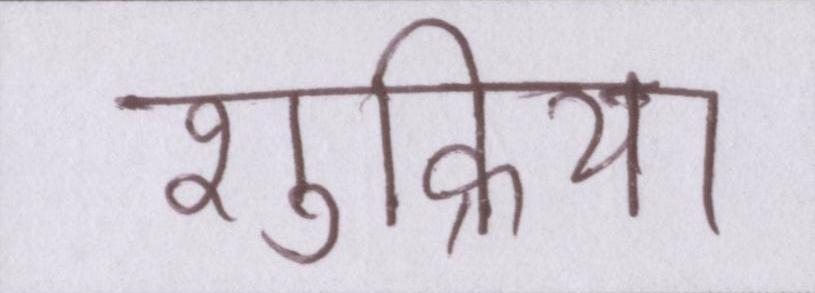 शुक्रिया